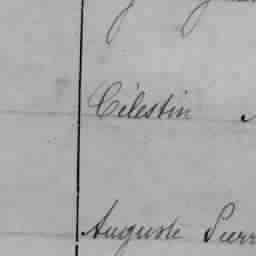 Célestin
Auguste Pierr